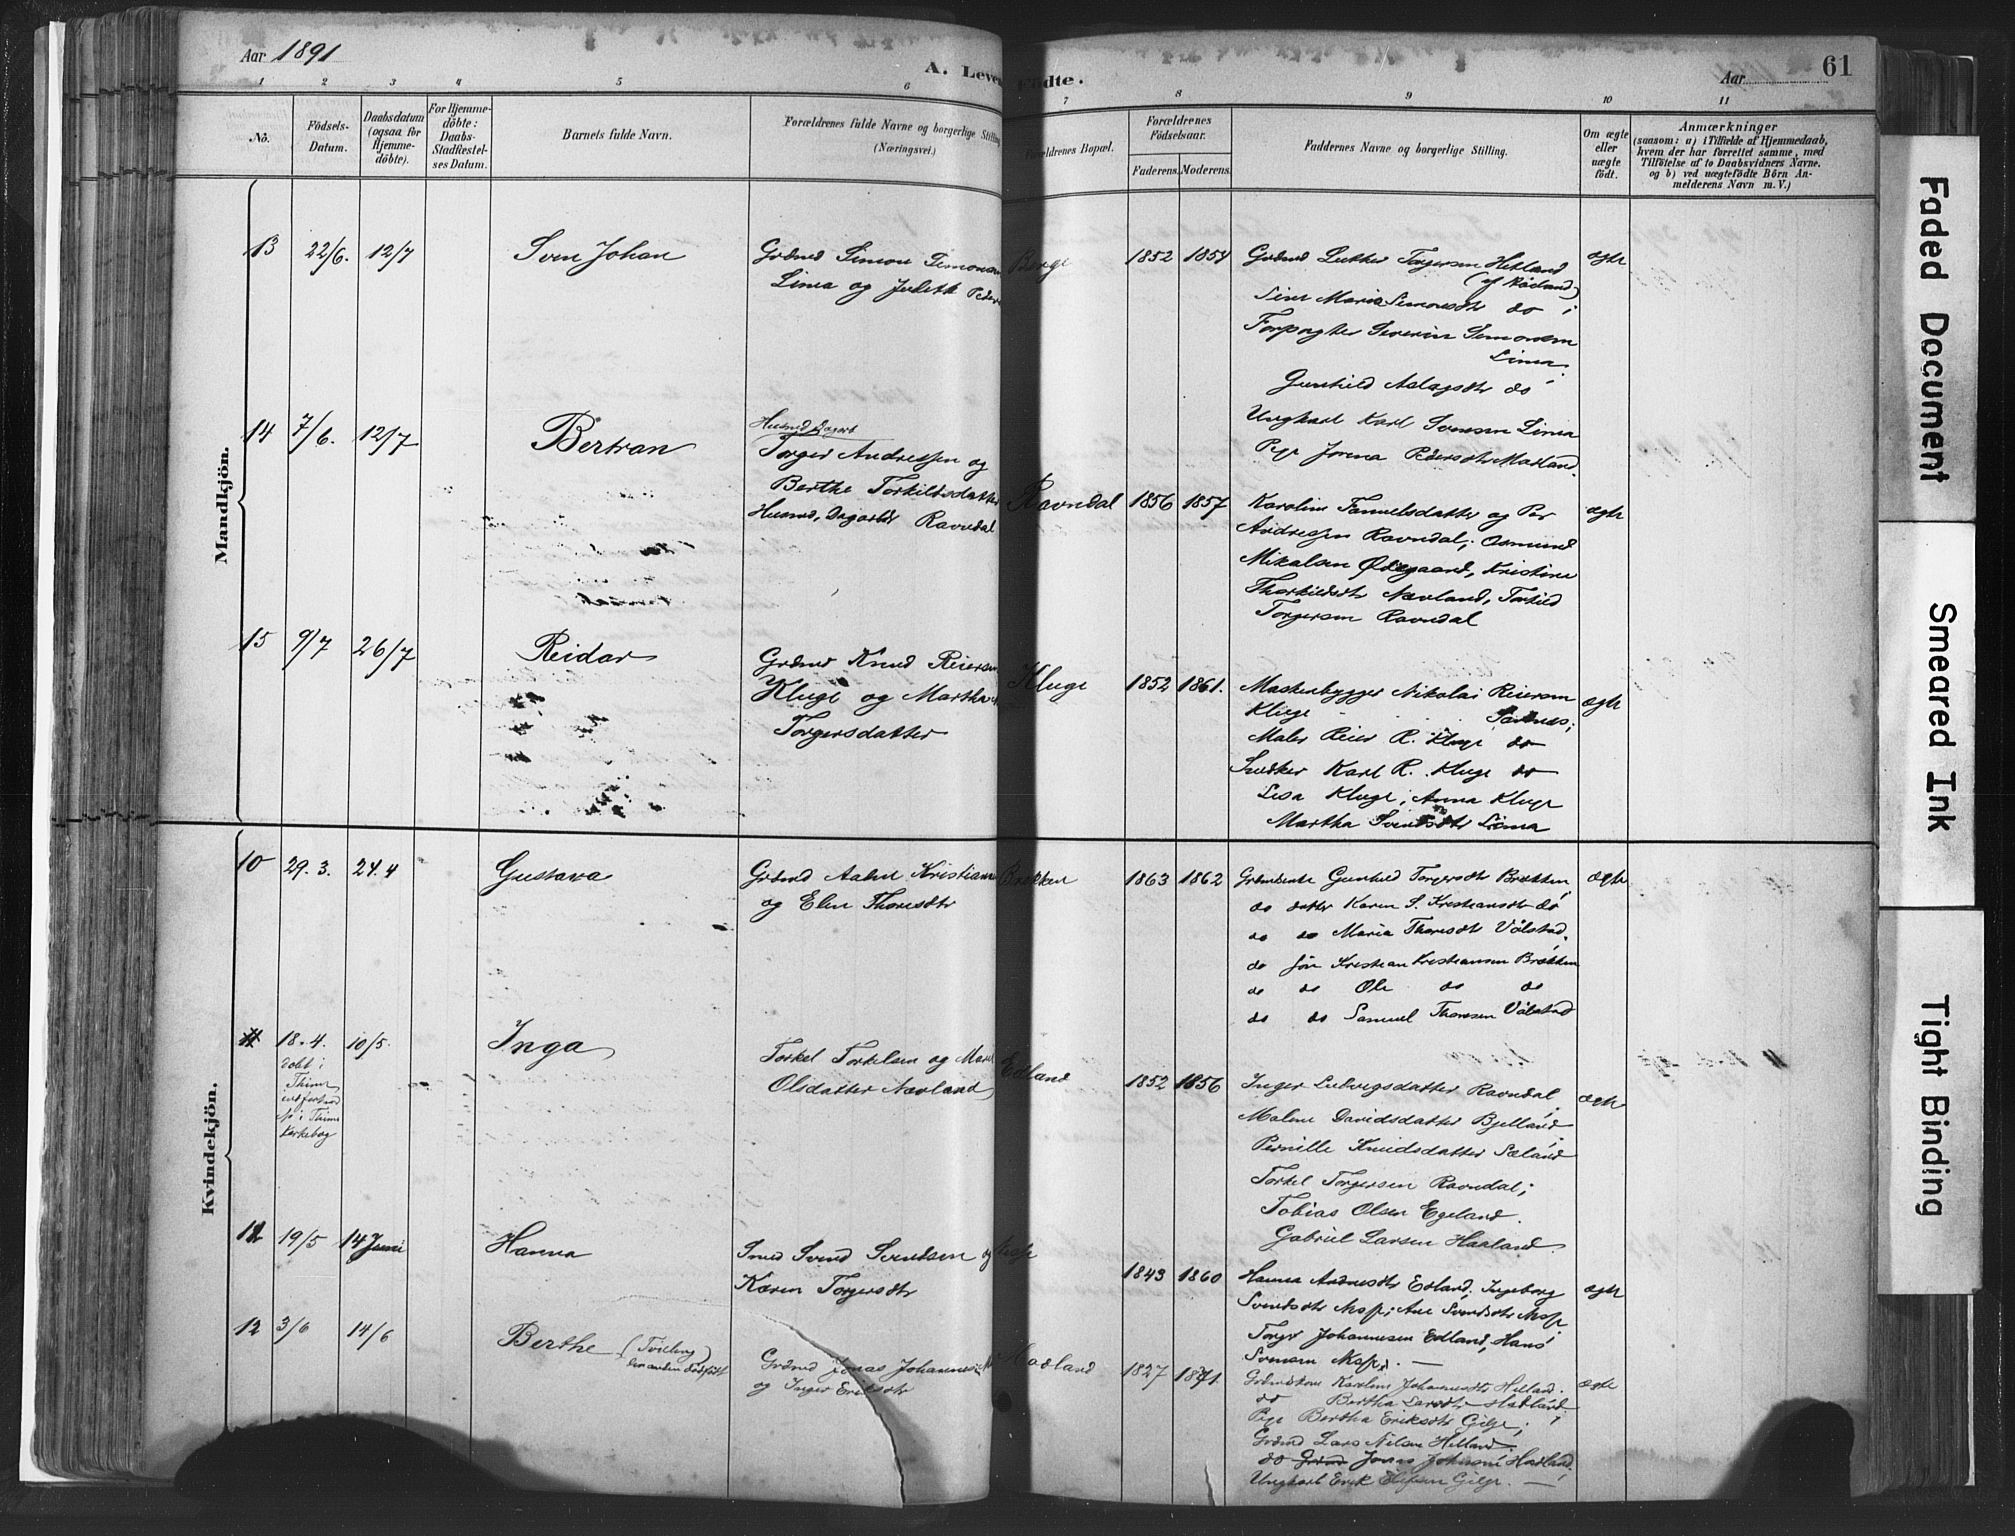 Aar 1891
A. Leve
Födte.
Aar
61
1 2 3 4 5 6 7 8 9 10 11
No.
Födsels-
Datum.
Daabsdatum
(ogsaa for
Hjemme-
döbte).
For Hjemme-
döbte:
Daabs-
Stadfestel-
ses Datum.
Barnets fulde Navn.
Forældrenes fulde Navne og borgerlige Stilling
(Næringsvei.)
Forældrenes Bopæl.
Forældrenes
Födselsaar.
Faderens. Moderens.
Faddernes Navne og borgerlige Stilling.
Om ægte
eller
uægte
födt.
Anmærkninger
(saasom: a) i Tilfælde af Hjemmedaab,
hvem der har forrettet samme, med
Tilföielse af to Daabsvidners Navne.
og b) ved uægtefödte Börn An-
melderens Navn m. V.)
Mandkjön.
13 22/6. 12/7
Sven Johan
Grdmd Simon Simonsen
Lima og Judith Peder
Berge
1852 1854
Grdmd Lutker Torgersen Hetland
(af Nædland)
Sine Maria Simonsdtr do
Forpagter Severin Simonsen
Lima
Gunhild Aslagsdtr do
Ungkarl Karl Svensen Lima
Pige Jorina Pedersdtr Maeland
ægte
14 7/6. 12/7
Bertran
Husmd Dagarb
Torger Andressen og
Berthe Torkildsdatter
Husmd, Dagarbdr Ravndal
Ravndal
1856 1857
Karoline Samuelsdatter og Per
Andressen Ravndal; Osmund
Mikalsen Ødegaard, Kristine
Thorkildsdtr Nævland, Torkild
Torgersen Ravndal
ægte
15 9/7 26/7
Reidar
Grdmd Knud Reiersen
Kluge og Martha
Torgersdatter
Kluge
1852 1861.
Maskenbygger Nikolai Reiersen
Kluge
Maler Reier R. Kluge do
Snedker Karl R. Kluge do
Lisa Kluge, Anna Kluge
Martha Svendsdtr Lima
ægte
Kvindekjön.
10 29. 3. 24. 4
Gustava
Grdmd Adne Kristian
og Elen Thoresdtr
Brekken
1863 1862
Grdmdenke Gunhild Torgersdtr Brekken
do datter Karen S. Kristiansdtr do
do do Maria Thoresdtr Völstad
do sön Kristian Kristiansen Brekken
do do Ole do do
do do Samuel Thoresen Völstad
ægte
11 18. 4. 10/5.
dobt i
Thime
indfort med
No i Thime
Kirkebog
Inga
Torkel Torkelsen og
Olsdatter Nævland
Edland
1852 1856
Inger Ludvigsdatter Ravndal
Malene Davidsdatter Bjelland
Pernille Knudsdatter Sæland
Torkel Torgersen Ravndal;
Tobias Olsen Egeland.
Gabriel Larsen Haaland
ægte
12 19/5 14 Juni
Hanna
Smed Svend Svendsen og
Karen Torgersdtr
1843 1860
Hanna Andresdtr Edland, Ingeborg
Svendsdtr Næse; Ane Svendsdtr Næse
Torger Johannesen Edland, Hans
Svensen Næse. —
ægte
12 3/6 14/6
Berthe (Tvilling)
den anden dödfödt
Grdmd Jonas Johannes
og Inger Eriksdtr
Hadland
1827 1871.
Grdmdskone Karoline Johannesdtr Helland.
do Bertha Larsdtr Hadland
Pige Bertha Eriksdtr Gilje;
Grdmd Lars Nilsen Helland
do Grdmd Jonas Johnsen Hadland
Ungkarl Erik Elefsen Gilje. —
ægte
Faded Document
Smeared Ink
Tight Binding